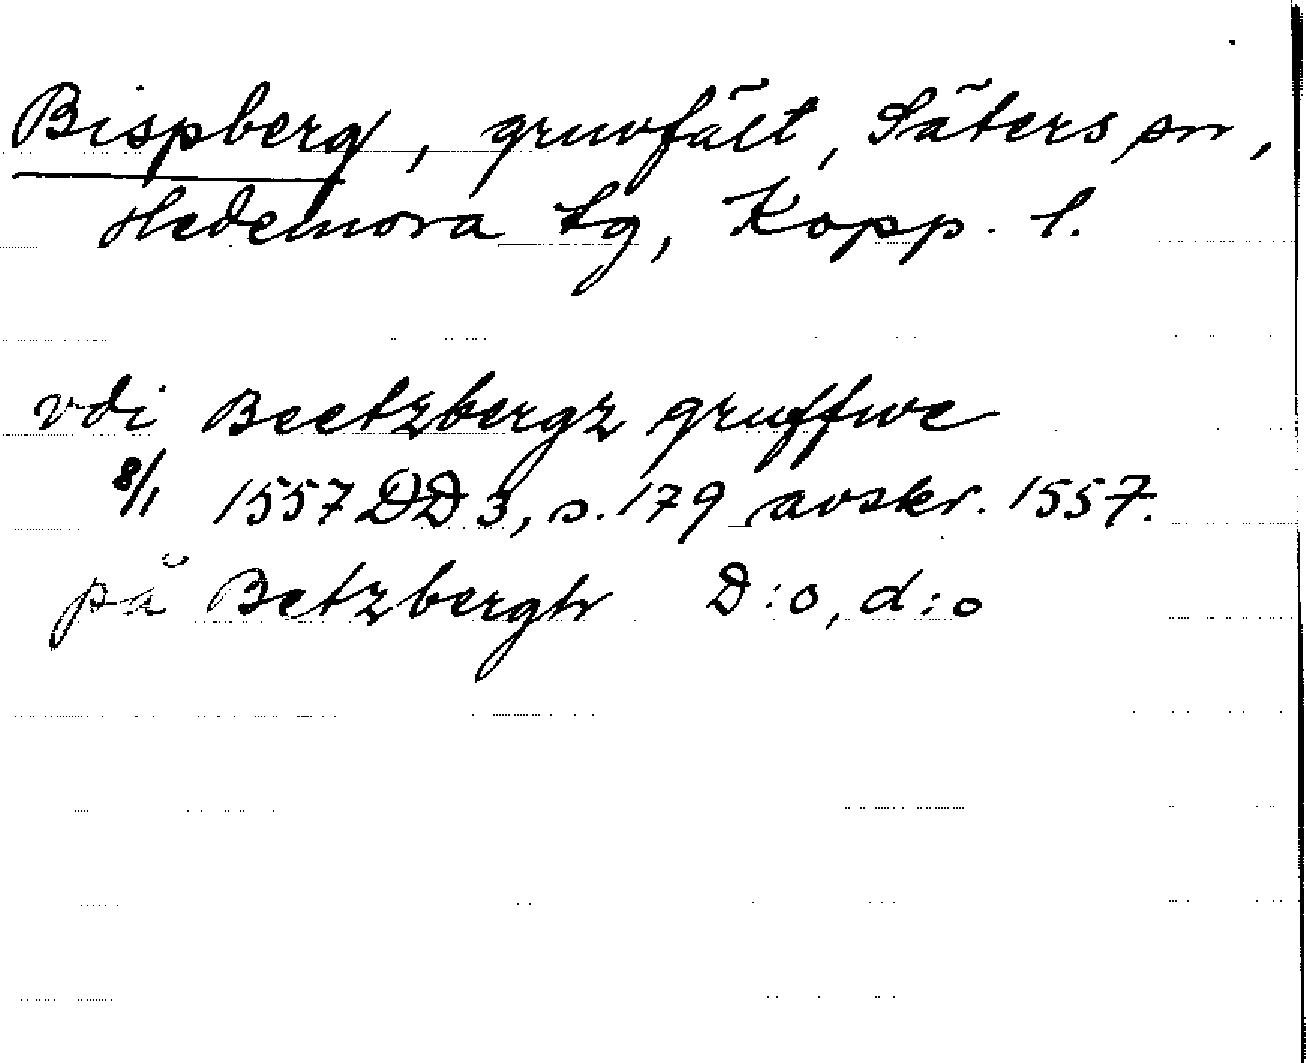 Bispberg, gruvfält, Säters sn,
Hedemora tg, Kopp. l.
vdi Beetzbergz gruffwe
8/1 1557 DD 3, s. 179 avskr. 1557.
på Betzbergh D:o, d:o